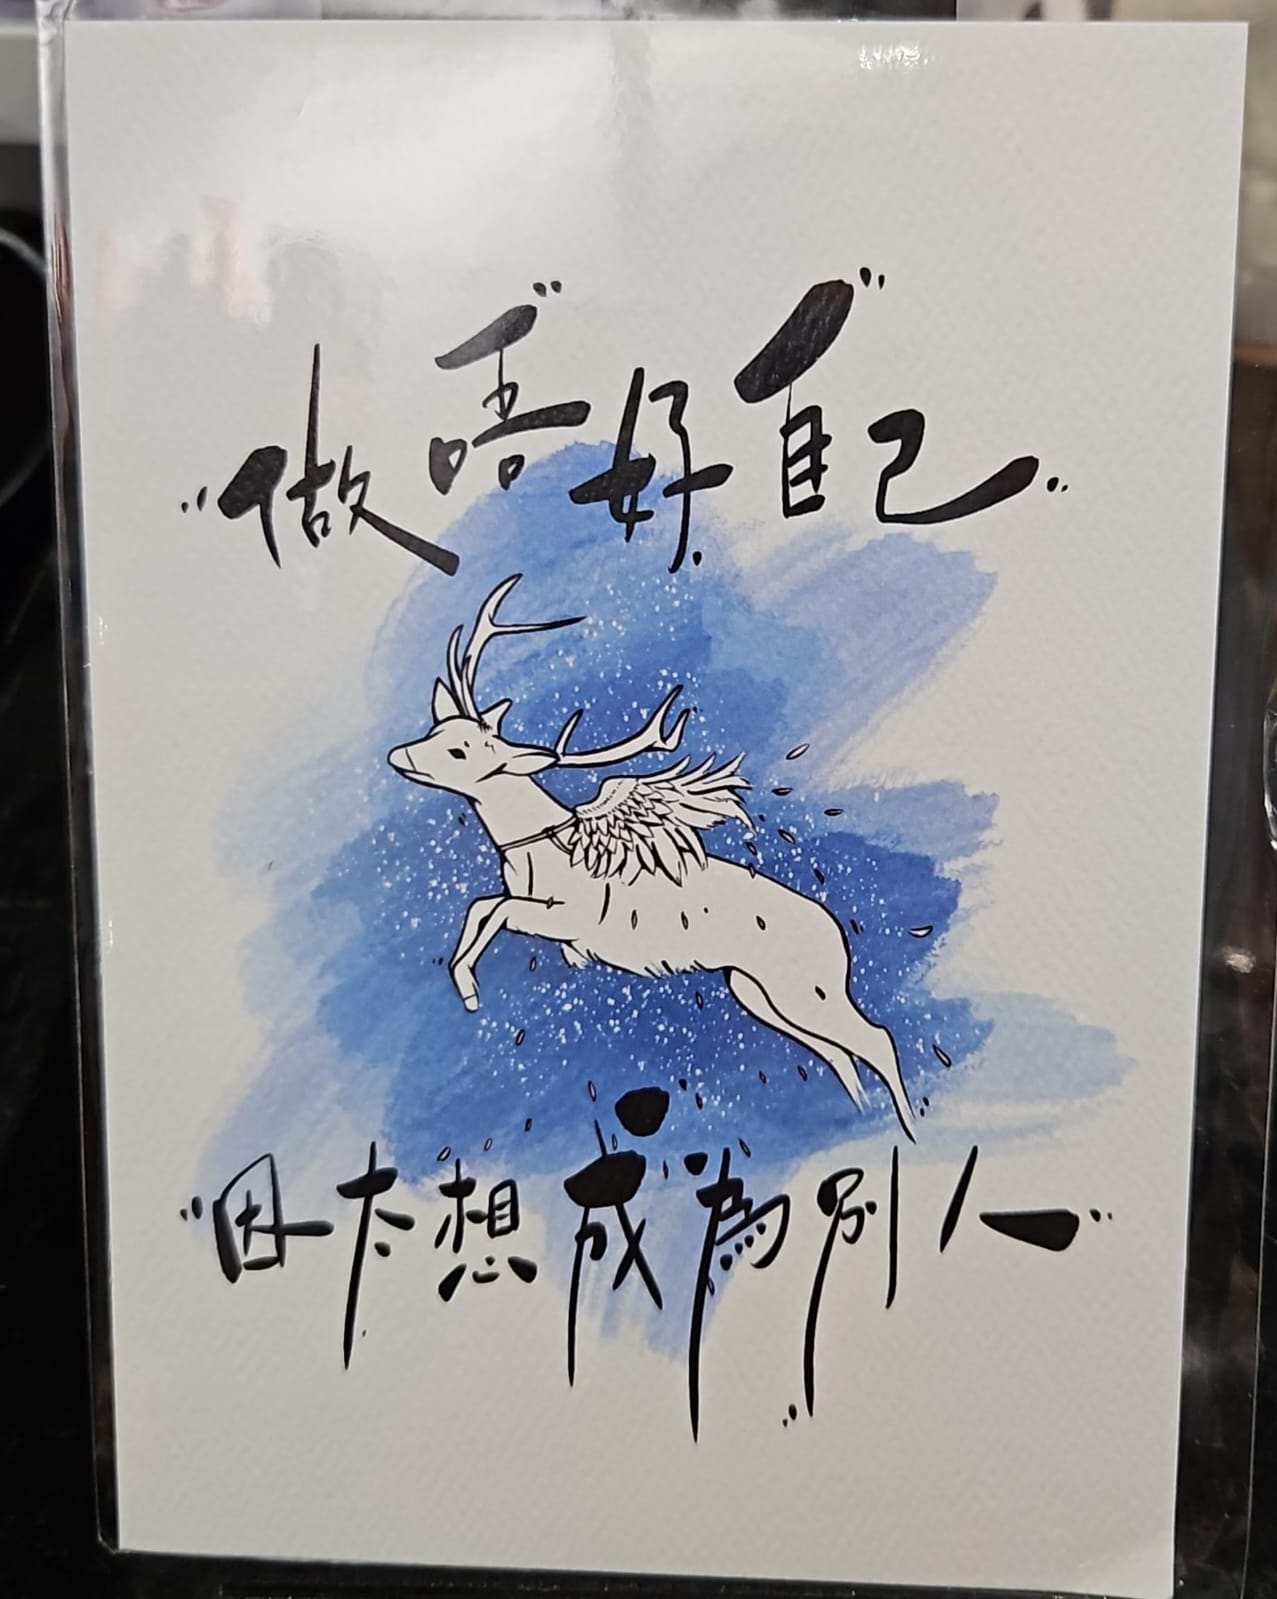 "做唔好自己"
"因太想成為別人"